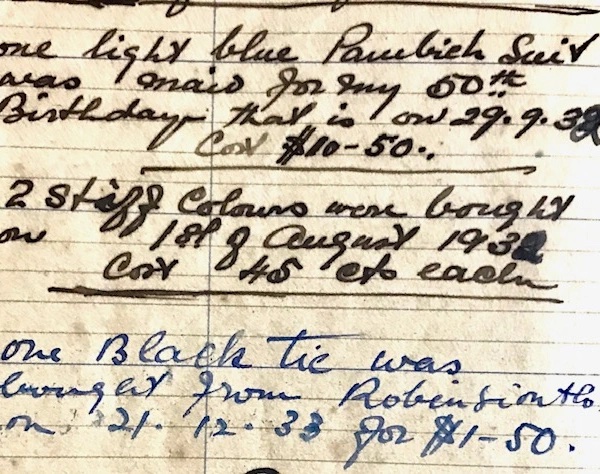 one light blue Pambich Suit
was maid for my 50th
Birthday that is on 29.9.32
Cost $10-50.
2 Stiff Colours were bought
on 1st of August 1932
Cost 45 cts each
one Black tie was
bought from Robinsion &Co
on 21.12.33 for $1-50.